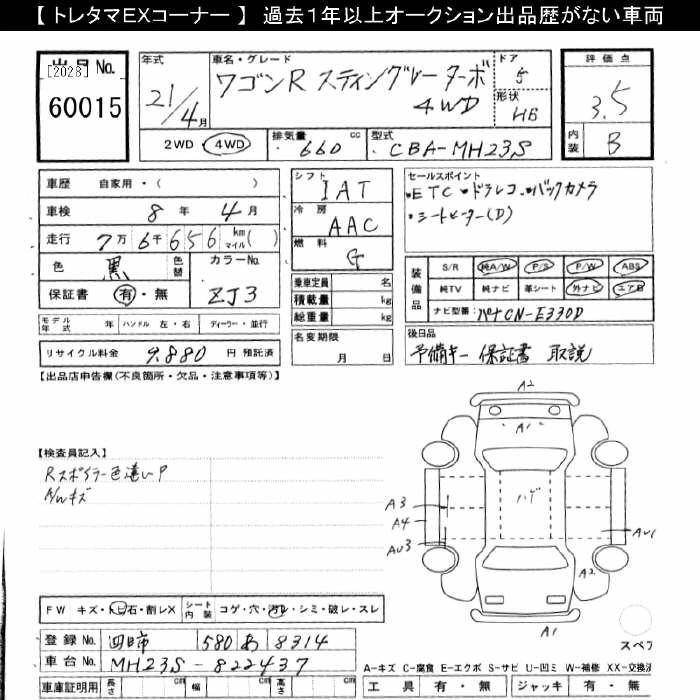 【 トレタマEXコーナー 】 過去１年以上オークション出品歴がない車両
出品No.
[2028]
60015
年式
21/4月
車名・グレード
ワゴンR スティングレーターボ
4WD
ドア
5
形状
HB
評価点
3.5
内装
B
2WD 4WD
排気量 660 cc
型式 CBA-MH23S
車歴 自家用・( )
車検 8年 4月
走行 7万6千656 km マイル( )
色 黒 色替
カラーNo. ZJ3
保証書 有・無
モデル年式 年 ハンドル 左・右 ディーラー・並行
リサイクル料金 9,880 円 預託済
シフト IAT
冷房 AAC
燃料 G
乗車定員 名
積載量 kg
総重量 kg
名変期限 月 日
セールスポイント
・ETC・ドラレコ・バックカメラ
・シートヒーター(D)
装備品
S/R 純A/W P/S P/W ABS
純TV 純ナビ 革シート 外ナビ エアB
ナビ型番: パナCN-E330D
後日品
予備キー 保証書 取説
【出品店申告欄(不良箇所・欠品・注意事項等)】
【検査員記入】
Rスポイラー色違いP
A/Wキズ
A2
A1
ハゲ
A3
A4
AU3
AU1
A2
A1
FW キズ・トビ石・割レX
シート内装 コゲ・穴・汚レ・シミ・破レ・スレ
登録No. 四日市 580 あ 8314
車台No. MH23S-822437
車庫証明用 長さ cm 幅 cm 高さ cm
スペア
A-キズ C-腐食 E-エクボ S-サビ U-凹ミ W-補修 XX-交換済
工具 有・無 ジャッキ 有・無